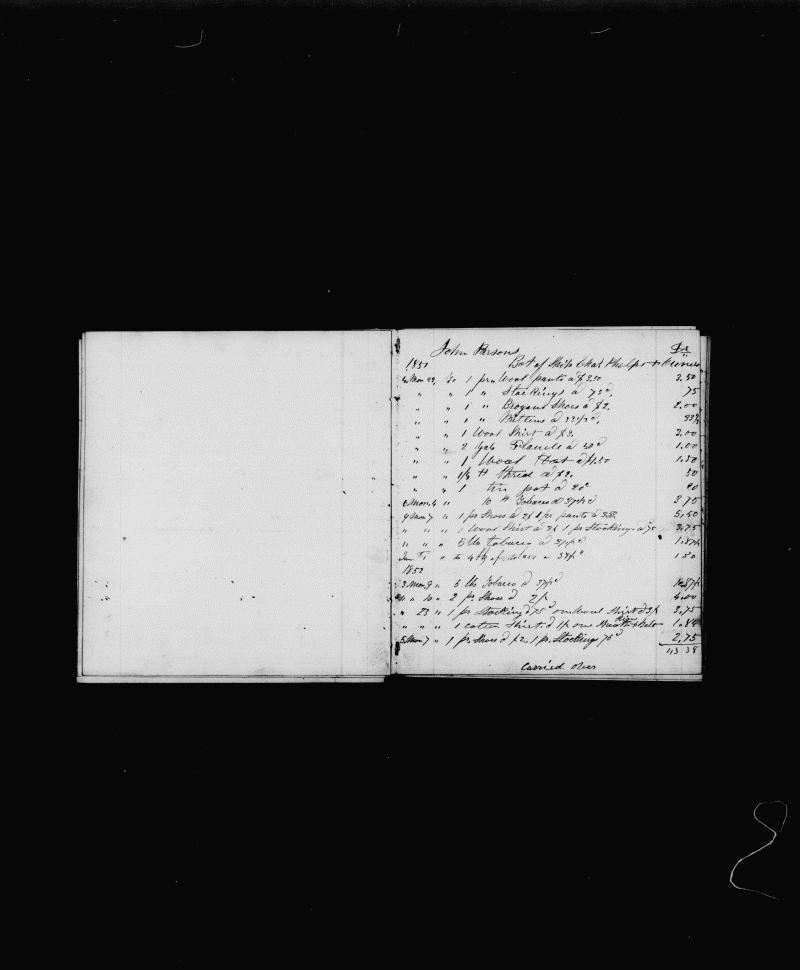 John Persons Dr
1850 Bot of Ship Chas Phelps & Owners
4 Mon 22 To 1 pr Wool pants a $3.50 3.50
" " 1 " Stockings a 75c 75
" " 1 " Brogans Shoes a $2. 2.00
" " 1 " Mittens a
" " 1 Wool Shirt a $2. 2.00
" " 2 Flannels a 50c 1.00
" " 1 Wool Hat a 1.50 1.50
" " 1/4 lb thread a $2. 50
" " 1 tin pot a 20c 20
Mon 4 " 10 lb Tobacco a 37½c 3 75
9 Mon 7 " 1 pr Shoes a 2$ 1 pr pants a 5.50
" " " 1 Wool Shirt a 1 pr Stockings a 75
" " " 5 lbs tobacco a 1.87½
" to 4 lb of a 37½c 1 50
185
3 Mon 9 " 5 lbs Tobacco a 37½c
" 10 " 2 pr Shoes a 2$ 4.00
" 23 " 1 pr Stocking a 75c one Wool Shirt a 3$ 3.75
" " " 1 cotton Shirt a 1$ one & Belt
5 Mon 7 " 1 pr Shoes a $2, 1 pr Stockings 75c 2.75
43 39
Carried over